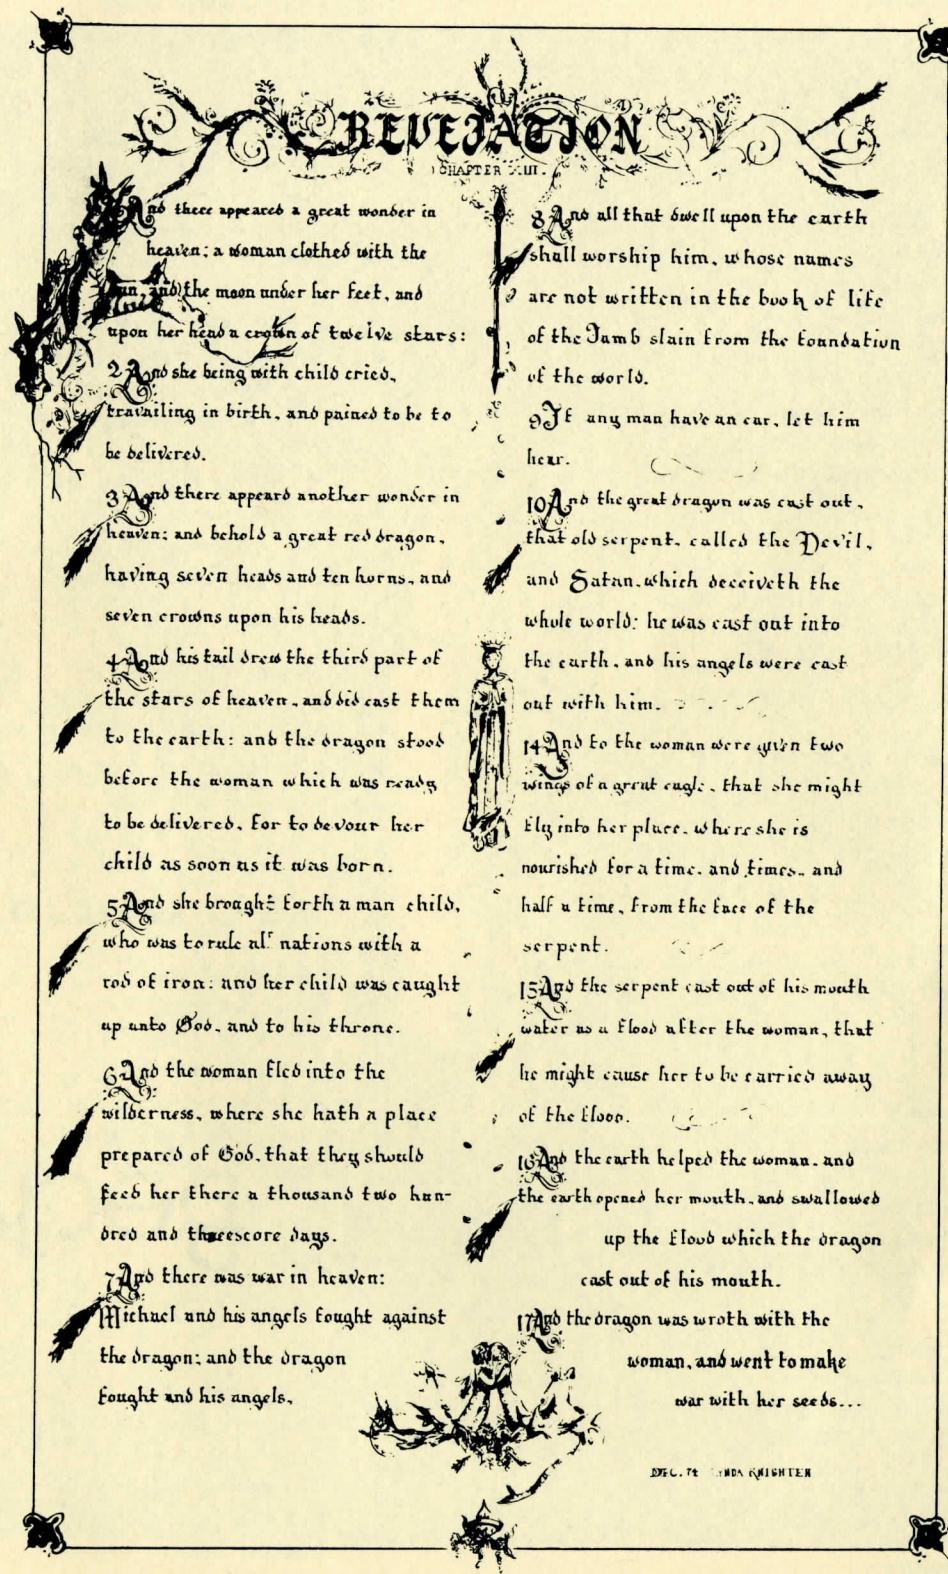 REVELATION
CHAPTER
And there appeared a great wonder in
heaven; a woman clothed with the
sun, and the moon under her feet, and
upon her head a crown of twelve stars:
2 And she being with child cried,
travailing in birth, and pained to be to
be delivered.
3 And there appeard another wonder in
heaven; and behold a great red dragon,
having seven heads and ten horns, and
seven crowns upon his heads.
4 And his tail drew the third part of
the stars of heaven, and did cast them
to the earth: and the dragon stood
before the woman which was ready
to be delivered, for to devour her
child as soon as it was born.
5 And she brought forth a man child,
who was to rule all nations with a
rod of iron: and her child was caught
up unto God, and to his throne.
6 And the woman fled into the
wilderness, where she hath a place
prepared of God, that they should
feed her there a thousand two hun-
dred and threescore days.
7 And there was war in heaven:
Michael and his angels fought against
the dragon; and the dragon
fought and his angels,
8 And all that dwell upon the earth
shall worship him, whose names
are not written in the book of life
of the Lamb slain from the foundation
of the world.
9 If any man have an ear, let him
hear.
10 And the great dragon was cast out,
that old serpent, called the Devil,
and Satan, which deceiveth the
whole world: he was cast out into
the earth, and his angels were cast
out with him.
14 And to the woman were given two
wings of a great eagle, that she might
fly into her place, where she is
nourished for a time, and times, and
half a time, from the face of the
serpent.
15 And the serpent cast out of his mouth
water as a flood after the woman, that
he might cause her to be carried away
of the flood.
16 And the earth helped the woman, and
the earth opened her mouth, and swallowed
up the flood which the dragon
cast out of his mouth.
17 And the dragon was wroth with the
woman, and went to make
war with her seeds...
DEC. 74 KNIGHTEN